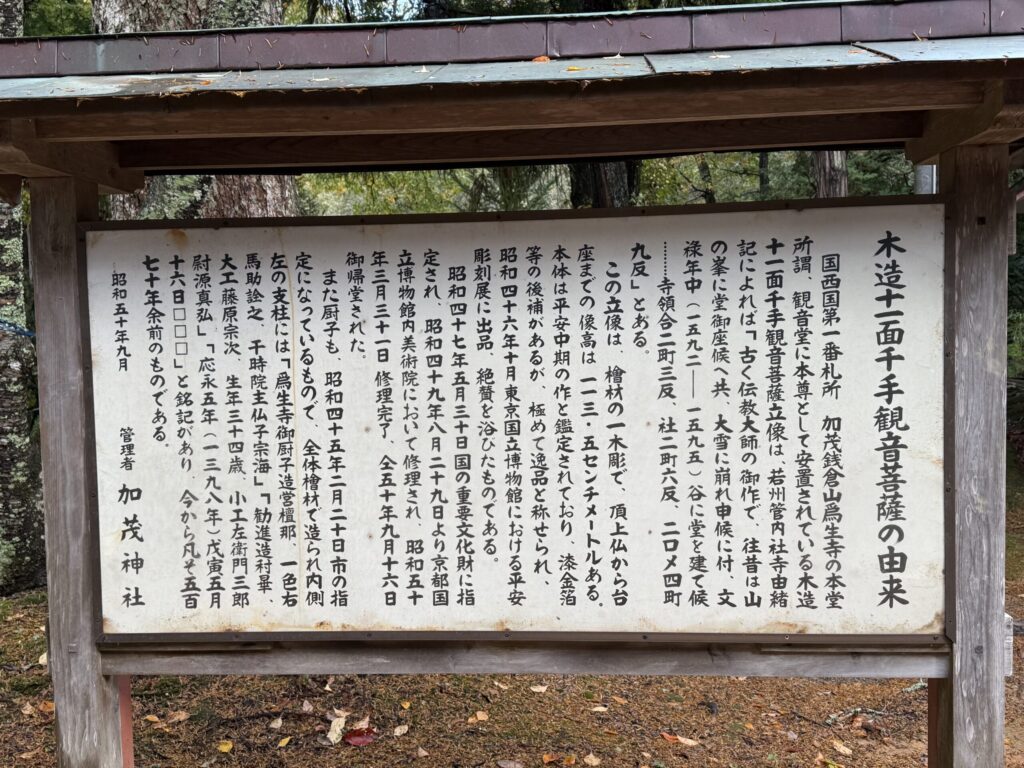 木造十一面千手観音菩薩の由来
国西国第一番札所　加茂銭倉山爲生寺の本堂
所謂、観音堂に本尊として安置されている木造
十一面千手観音菩薩立像は、若州管内社寺由緒
記によれば「古く伝教大師の御作で、往昔は山
の峯に堂御座候へ共、大雪に崩れ申候に付、文
禄年中（一五九二――一五九五）谷に堂を建て候
………寺領合二町三反、社二町六反、二口〆四町
九反」とある。
この立像は、檜材の一木彫で、頂上仏から台
座までの像高は一一三・五センチメートルある。
本体は平安中期の作と鑑定されており、漆金箔
等の後補があるが、極めて逸品と称せられ、
昭和四十六年十月東京国立博物館における平安
彫刻展に出品、絶賛を浴びたものである。
昭和四十七年五月三十日国の重要文化財に指
定され、昭和四十九年八月二十九日より京都国
立博物館内美術院において修理され、昭和五十
年三月三十一日修理完了、仝五十年九月十六日
御帰堂された。
また厨子も、昭和四十五年二月二十日市の指
定になっているもので、全体檜材で造られ内側
左の支柱には「爲生寺御厨子造営檀那、一色右
馬助詮之、干時院主仏子宗海」「勧進造村畢、
大工藤原宗次、生年三十四歳、小工左衛門三郎
尉源真弘」「応永五年（一三九八年）戊寅五月
十六日□□□」と銘記があり、今から凡そ五百
七十年余前のものである。
昭和五十年九月
管理者　加茂神社